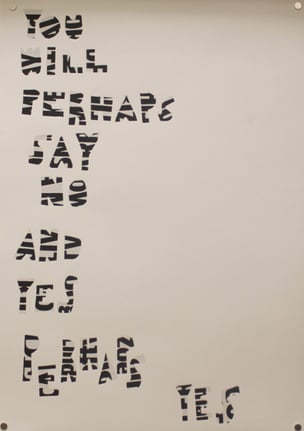 YOU
WILL
PERHAPS
SAY
NO
AND
YES
PERHAPS
YES